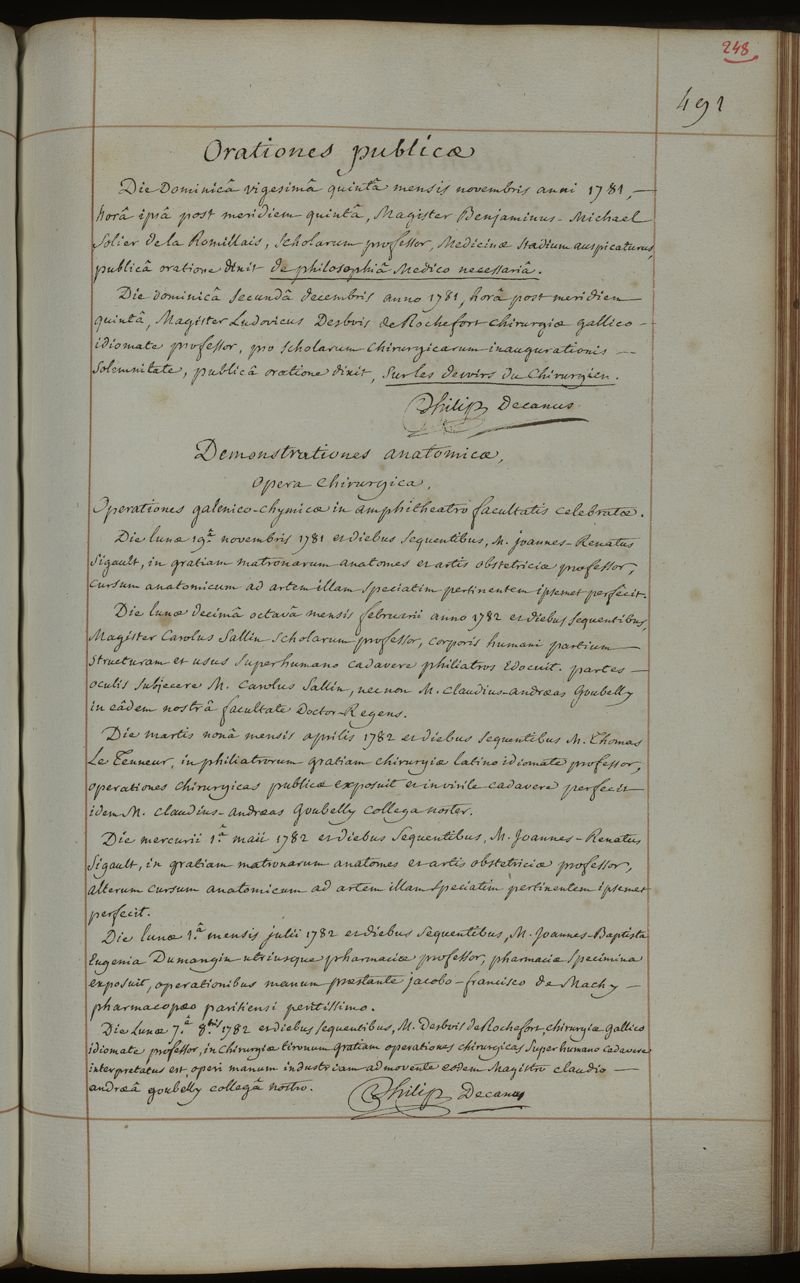 248
491
Orationes publicæ
Die Dominicâ vigesimâ quintâ mensis novembris anni 1781, —
horâ ipsâ post meridiem quintâ, Magister Benjaminus-Michael
Solier de la Romillais, Scholarum professor, Medicinæ Stadium auspicaturus,
publicâ oratione dixit de philosophiâ Medico necessariâ.
Die dominicâ Secundâ decembris anno 1781, horâ post meridiem
quintâ, Magister Ludovicus Desbois de Rochefort chirurgiæ gallico -
idiomate professor, pro Scholarum chirurgicarum inaugurationis —
Solemnitate, publicâ oratione dixit, Sur les devoirs du Chirurgien.
Philip Decanus
Demonstrationes anatomicæ,
opera chirurgica,
Operationes galenico-chymicæ in amphitheatro facultatis celebratæ.
Die lunæ 19.â novembris 1781 et diebus Sequentibus, M. joannes-Renatus
Sigault, in gratiam matronarum anatomes et artis obstetriciæ professor,
cursum anatomicum ad artem illam Speciatim pertinentem ipsemet perfecit.
Die lunæ decimâ octavâ mensis februarii anno 1782 et diebus Sequentibus,
Magister Carolus Sallin Scholarum professor, corporis humani partium —
Structuram et usus Super humano cadavere philiatros edocuit. partes —
oculis Subjecere M. Carolus Sallin, nec non M. claudius-andræas Goubelly
in eâdem nostrâ facultate Doctor-Regens.
Die martis nonâ mensis aprilis 1782 et diebus Sequentibus M. Thomas
Le Tenneur, in philiatrorum gratiam chirurgiæ latino idiomate professor,
operationes chirurgicas publicæ exposuit et in virile cadavere perfecit
idem M. claudius-andræas Goubelly collega noster.
Die mercurii 1.â maii 1782 et diebus Sequentibus, M. Joannes-Renatus
Sigault, in gratiam matronarum anatomes et artis obstetriciæ professor,
alterum cursum anatomicum ad artem illam Speciatim pertinentem ipsemet
perfecit.
Die lunæ 1.â mensis julii 1782 et diebus Sequentibus, M. Joannes-Baptista
Eugenia Dumangin utriusque pharmaciæ professor, pharmaciæ Specimina
exposuit, operationibus manum præstante jacobo-francisco de Machy —
pharmacopæo parisiensi peritissimo.
Die Lunæ 7.â 8.bris 1782 et diebus Sequentibus, M. Desbois de Rochefort, chirurgiæ gallico
idiomate professor, in chirurgiæ tironum gratiam operationes chirurgicas Super humano cadavere
interpretatus est, operi manum industriam admovente eodem Magistro claudio —
andræâ goubelly collegâ nostro.
Philip Decanus